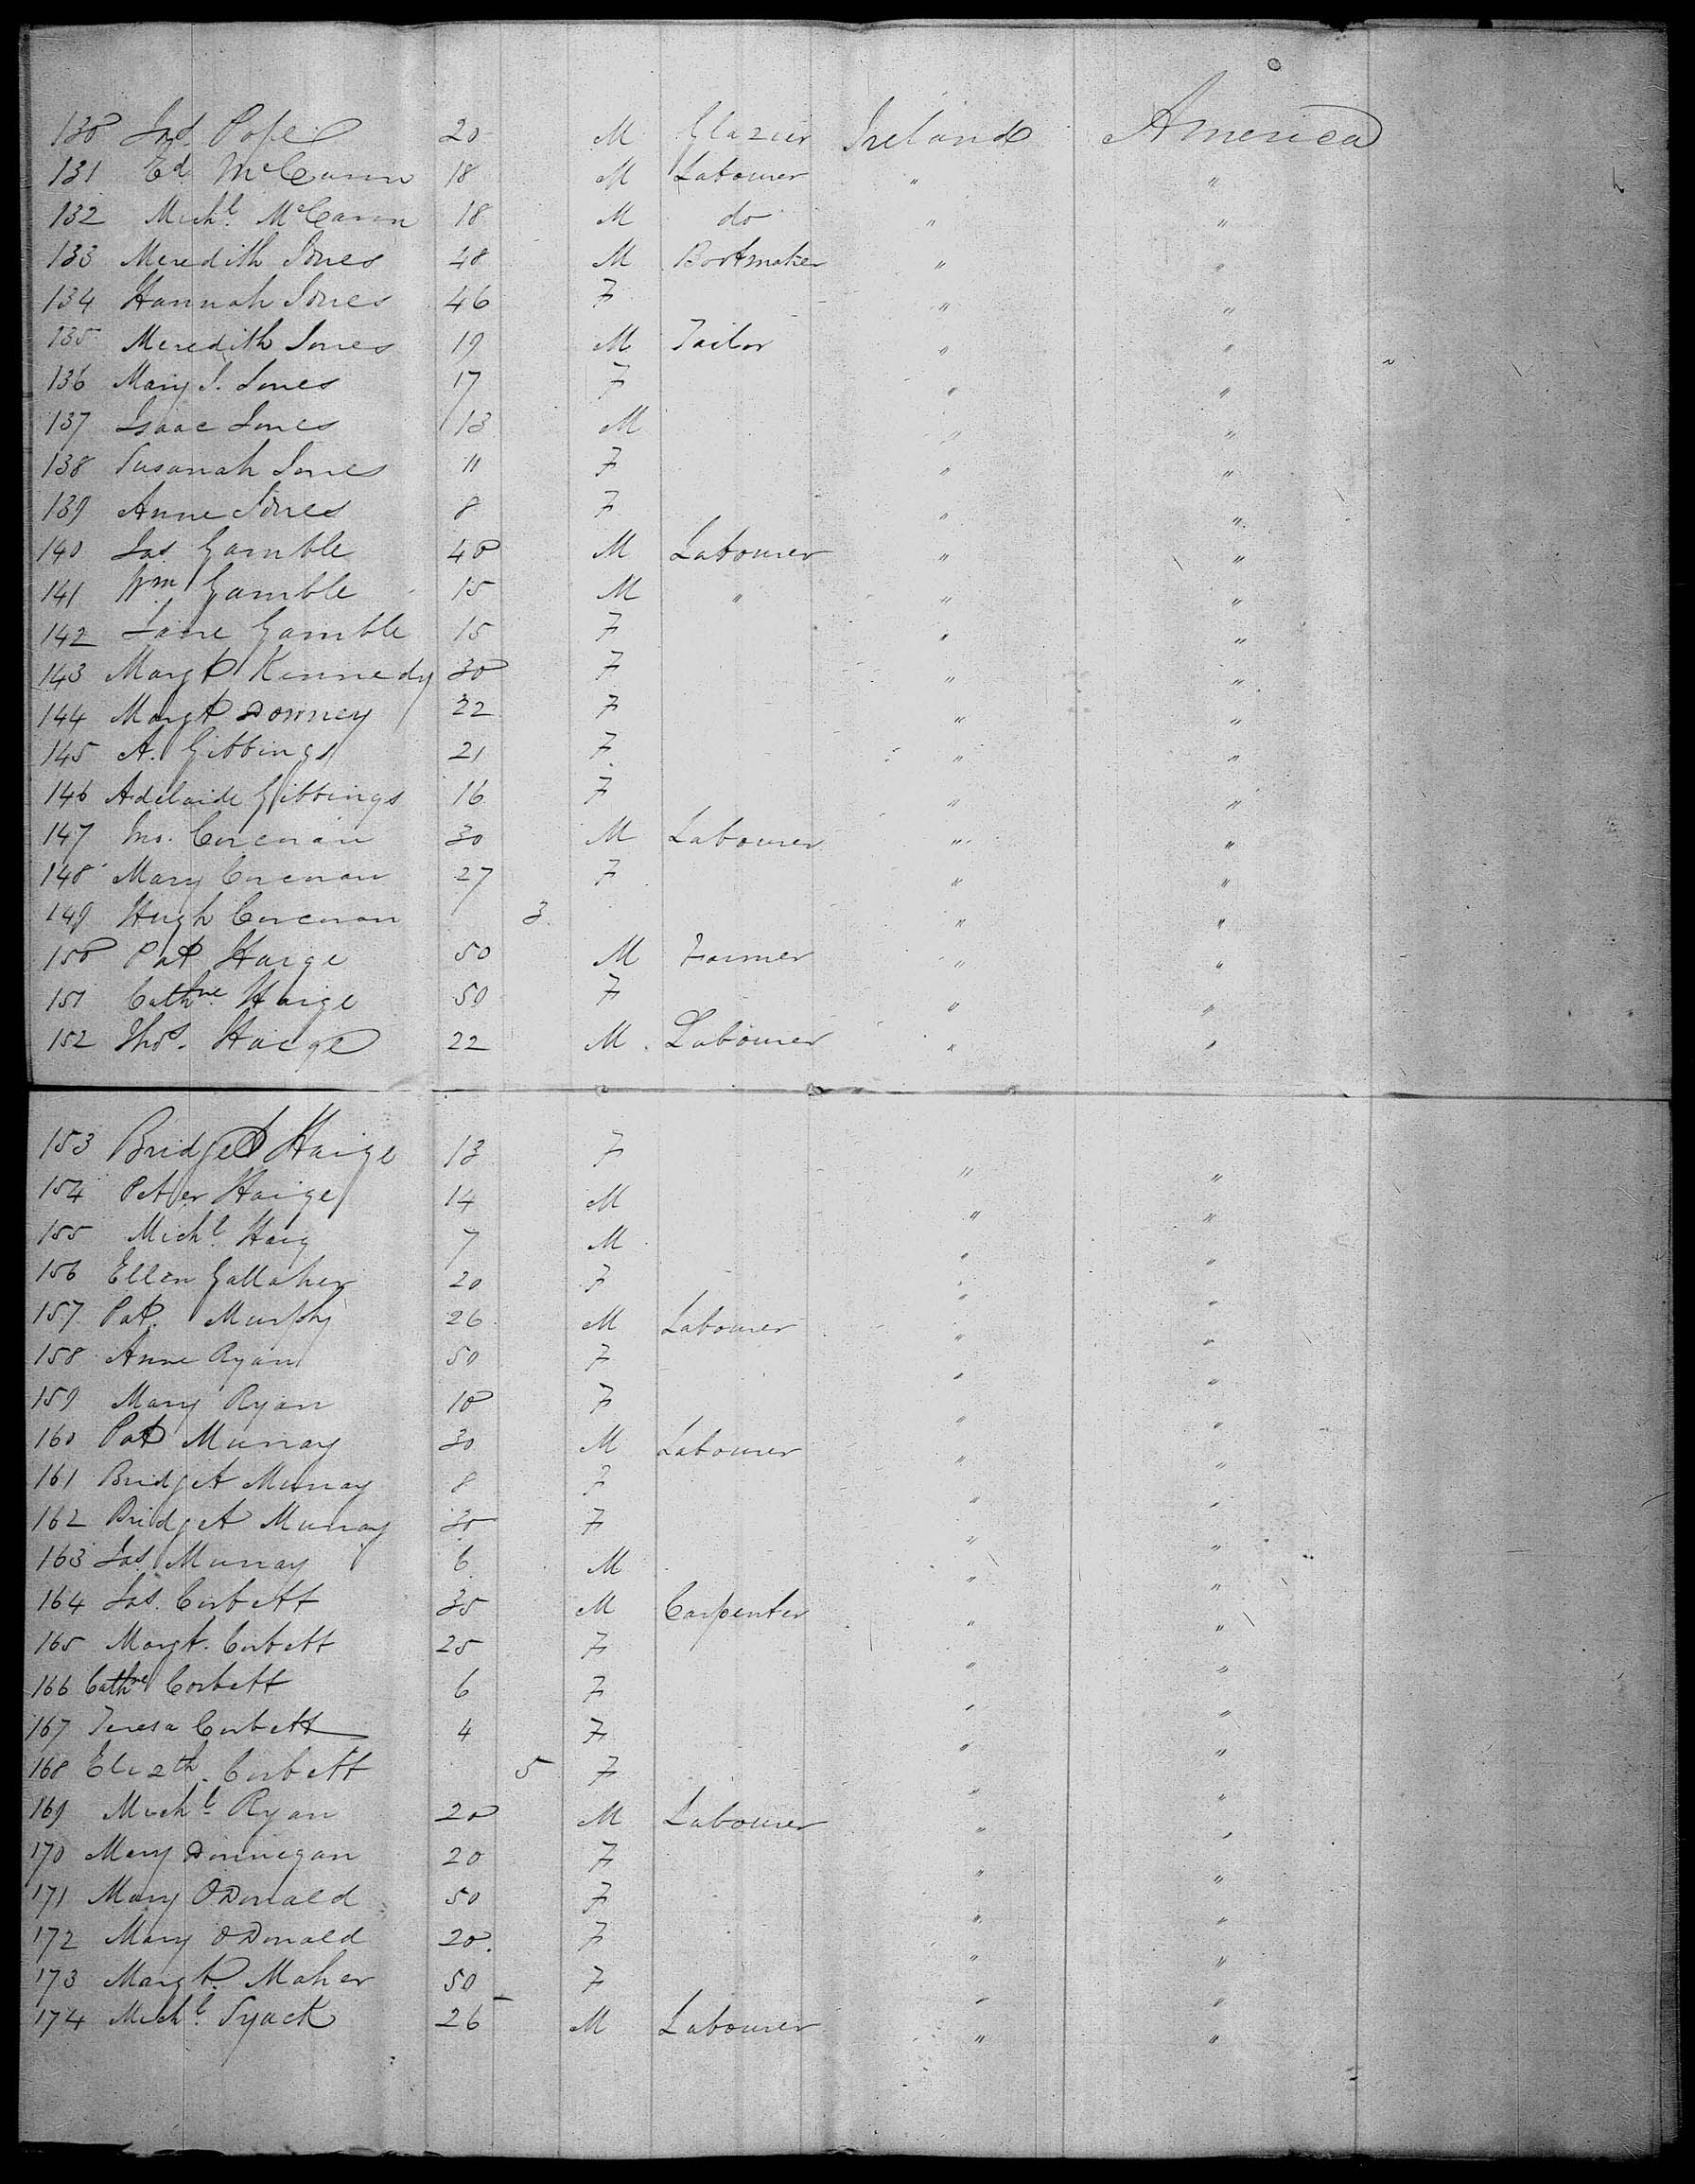 130 Jas. Pope 20 M Glazier Ireland America
131 Ed McCann 18 M Labourer " "
132 Michl. McCann 18 M do " "
133 Meredith Jones 48 M Bootmaker " "
134 Hannah Jones 46 F " "
135 Meredith Jones 19 M Tailor " "
136 Mary J. Jones 17 F " "
137 Isaac Jones 13 M " "
138 Susanah Jones 11 F " "
139 Anne Jones 8 F " "
140 Jas. Gamble 40 M Labourer " "
141 Wm Gamble 15 M " " "
142 Jane Gamble 15 F " "
143 Margt Kennedy 30 F " "
144 Margt Downey 22 F " "
145 A. Gibbings 21 F " "
146 Adelaide Gibbings 16 F " "
147 Jno. Corcoran 30 M Labourer " "
148 Mary Corcoran 27 F " "
149 Hugh Corcoran 3 " "
150 Pat Haige 50 M Farmer " "
151 Cathne Haige 50 F " "
152 Thos. Haige 22 M Labourer " "
153 Bridget Haige 13 F " "
154 Peter Haige 14 M " "
155 Michl. Haig 7 M " "
156 Ellen Gallaher 20 F " "
157 Pat. Murphy 26 M Labourer " "
158 Anne Ryan 50 F " "
159 Mary Ryan 10 F " "
160 Pat Murray 30 M Labourer " "
161 Bridget Murray 8 F " "
162 Bridget Murray 30 F " "
163 Jas. Murray 6 M " "
164 Jas. Corbett 35 M Carpenter " "
165 Margt. Corbett 25 F " "
166 Cathne Corbett 6 F " "
167 Teresa Corbett 4 F " "
168 Elizth. Corbett 5 F " "
169 Michl. Ryan 20 M Labourer " "
170 Mary Dinnegan 20 F " "
171 Mary O Donald 50 F " "
172 Mary O Donald 20. F " "
173 Margt. Maher 50 F " "
174 Michl. 26 M Labourer " "